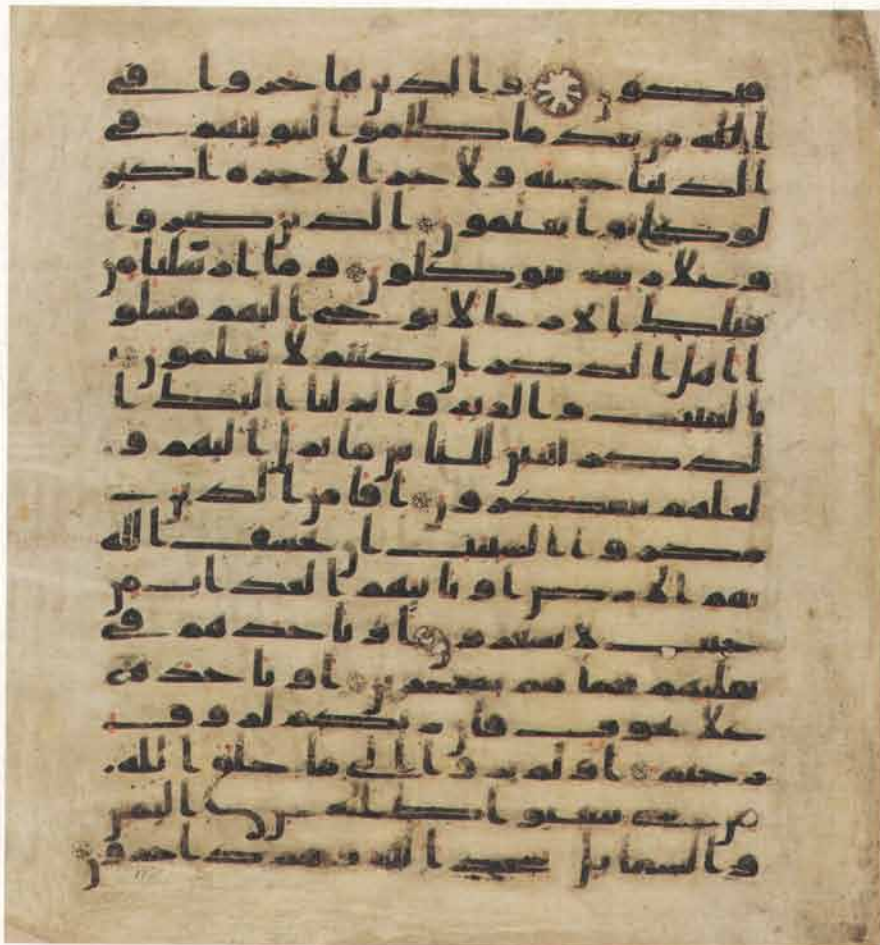 فيكون والذين هاجروا في
الله من بعد ما ظلموا لنبوينهم في
الدنيا حسنه ولاجر الاخره اكبر
لو كانوا يعلمون الذين صبروا
وعلى ربهم يتوكلون وما ارسلنا من
قبلك الا رجالا نوحي اليهم فسلو
ا اهل الذكر ان كنتم لا تعلمون
بالبينت والزبر وانزلنا اليك ا
لذكر لتبين للناس ما نزل اليهم و
لعلهم يتفكرون افامن الذين
مكروا السيات ان يخسف الله
بهم الارض او ياتيهم العذاب من
حيث لا يشعرون او ياخذهم في
تقلبهم فما هم بمعجزين او ياخذهم
على تخوف فان ربكم لروف
رحيم او لم يروا الى ما خلق الله
من شي يتفيوا ظلله عن اليمين
والشمايل سجدا لله وهم داخرون